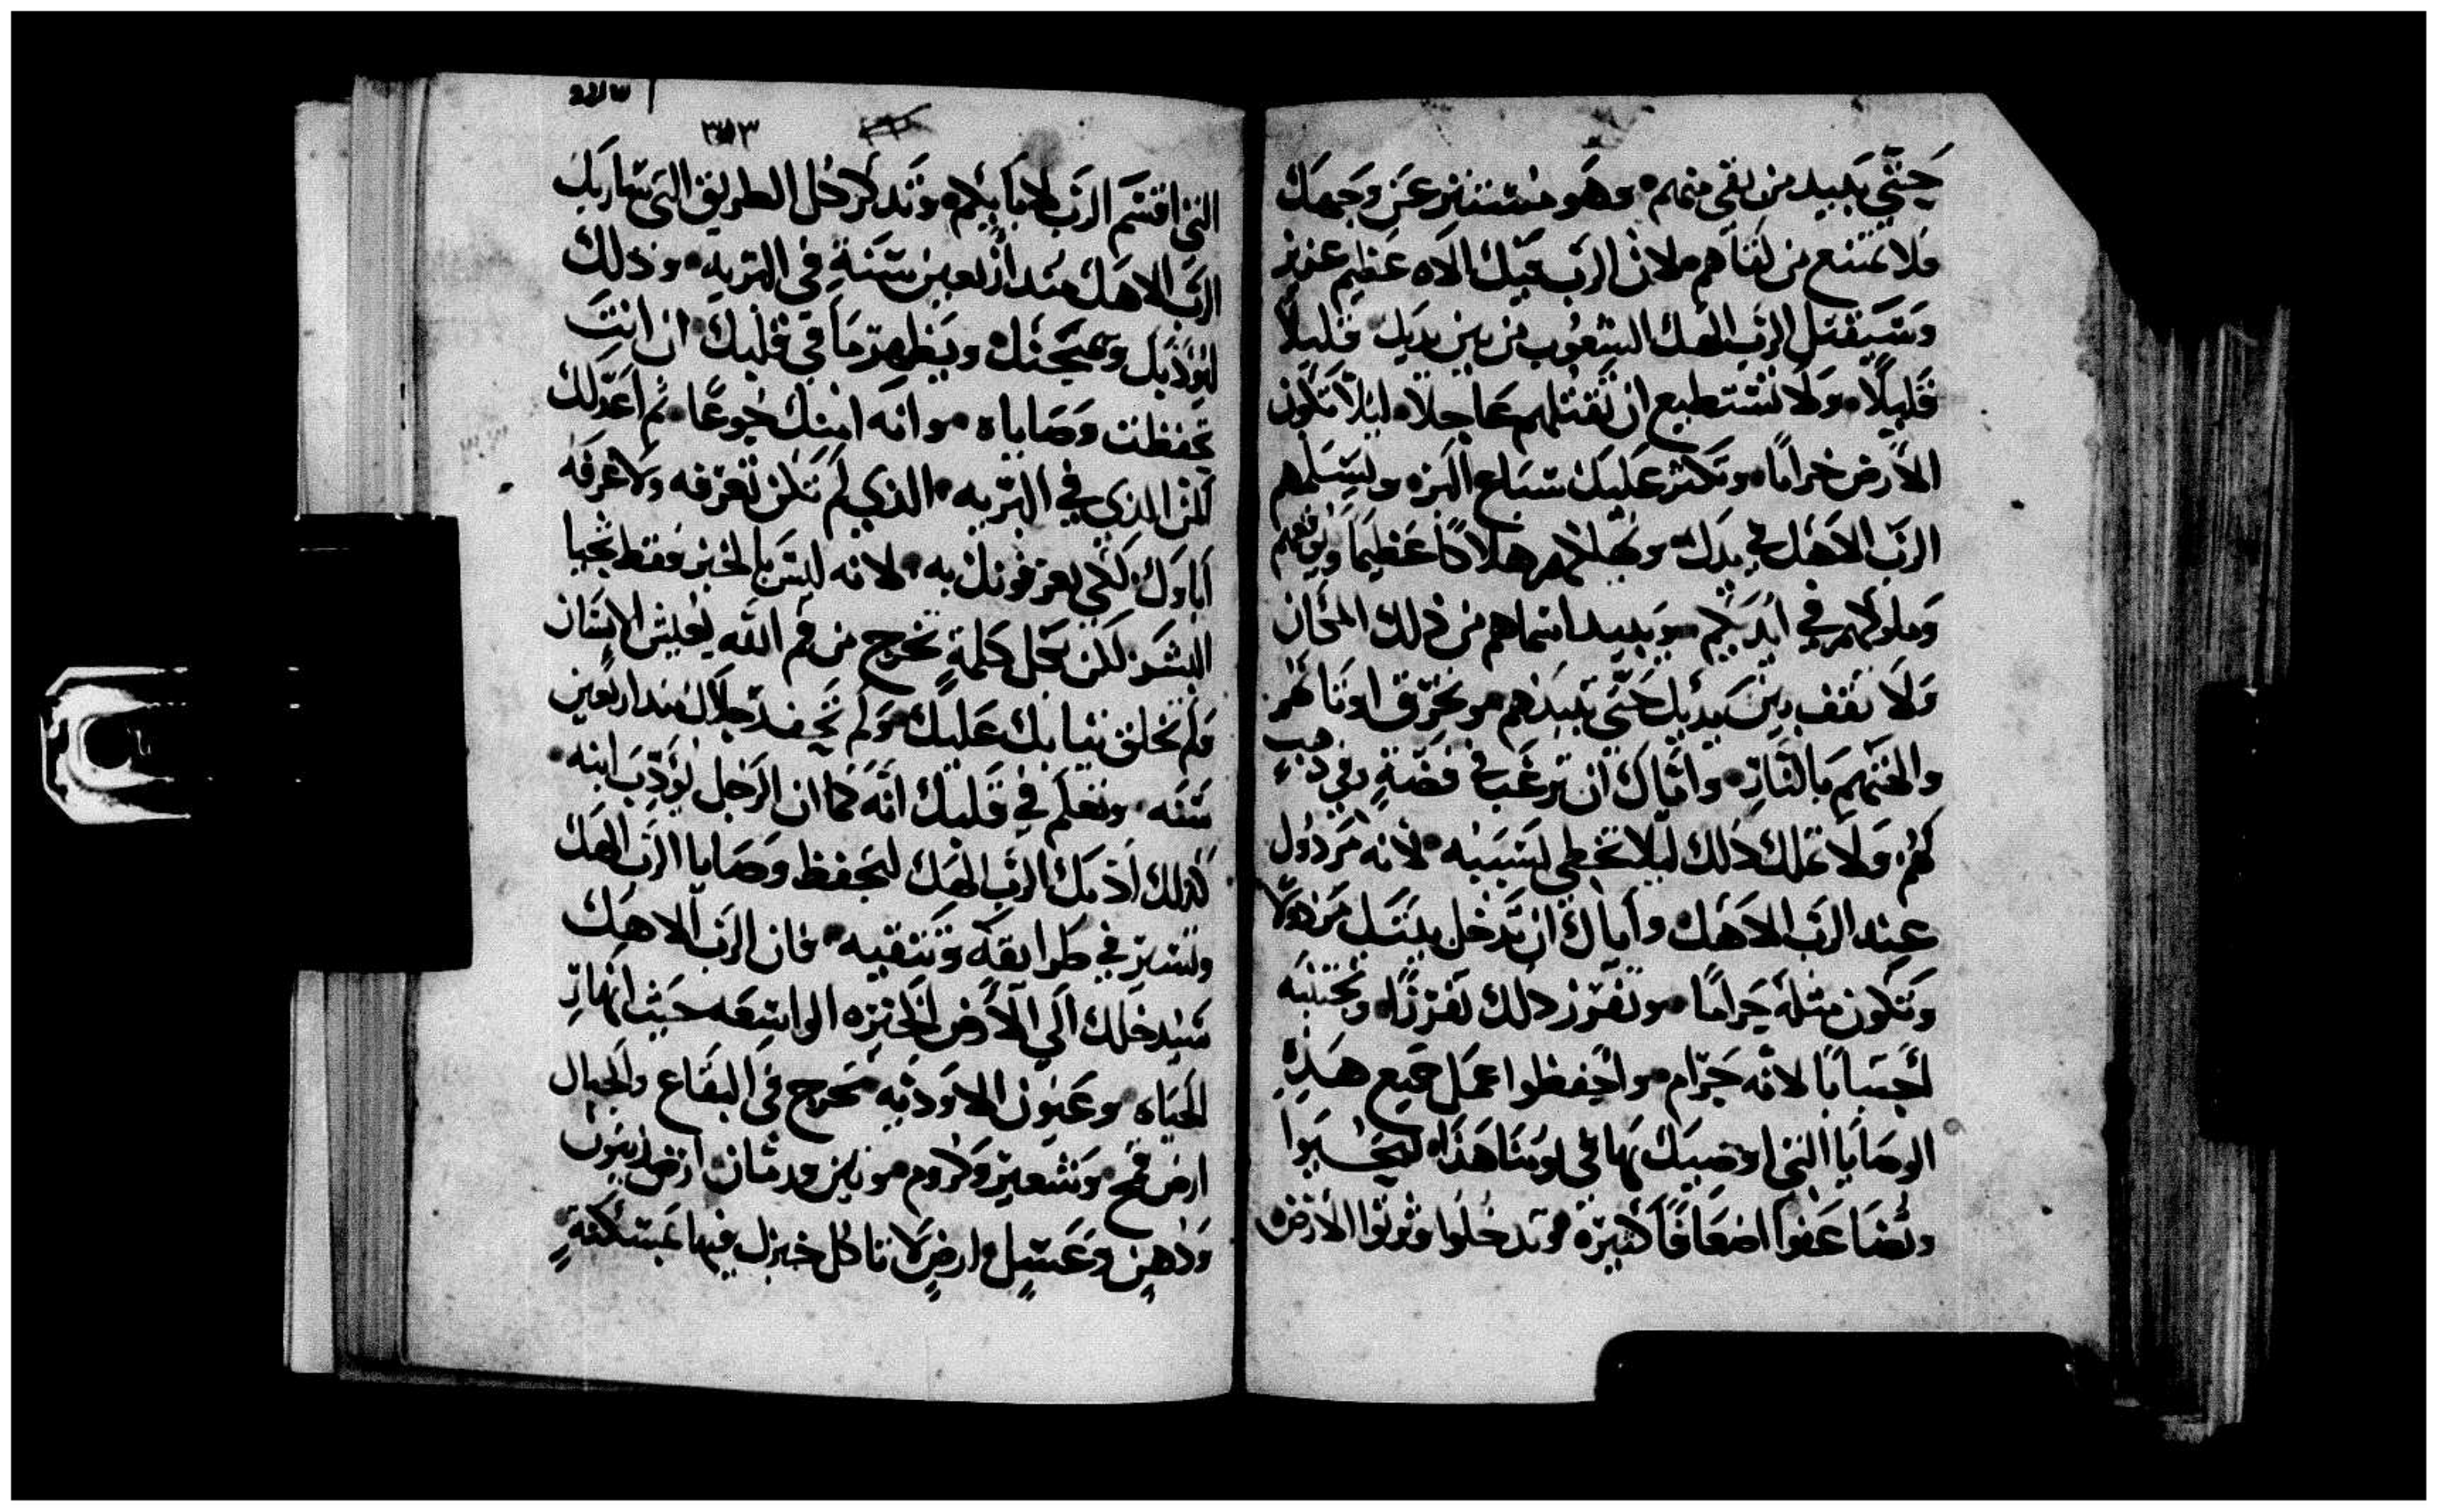 حتي يبيد من بقي منهم وهو مستتر عن وجهك
فلا تمتنع من لقاهم لان الرب فيك الاه عظيم عزيز
وسيقتل الرب الهك الشعوب من بين يديك قليلاً
قليلاً ولا تستطيع ان تقتلهم عاجلا ليلا تكون
الارض خرابا وتكثر عليك سباع البر ويسلمهم
الرب الاهك في يدك ويهلكهم هلاكا عظيما ويوقعهم
وملوكهم في ايديكم ويبيد اسماهم من ذلك المكان
ولا تقف بين يديك حتي تبيدهم وتحرق اوثانهم
والهتهم بالنار واياك ان ترغب في فضة وفي ذهب
لهم ولا تملك ذلك ليلا تخطي لسببه لانه مردول
عند الرب الاهك واياك ان تدخل بيتك مردولا
وتكون مثله حراما وتفرز ذلك تفرزا وتجتنبه
اجتنابا لانه حرام واحفظوا عمل جميع هذه
الوصايا التي اوصيك بها في يومنا هذا لتحيوا
وتضاعفوا اضعافا كثيرة وتدخلوا وترثوا الارض
٣٥٣
التي اقسم الرب لابايكم وتذكر كل الطريق التي سار بك
الرب الاهك منذ اربعين سنة في البريه وذلك
ليوذبك ويمتحنك ويظهر ما في قلبك ان انت
تحفظت وصاياه وانه امتك جوعا ثم اعد لك
المن الذي في البريه الذي لم تكن تعرفه ولا عرفه
اباوك لكي يعرفونك به لانه ليس بالخبز فقط يحيا
البشر لكن بكل كلمة تخرج من فم الله يعيش الانسان
ولم تخلق ثيابك عليك ولم تحف رجلاك منذ اربعين
سنه وتعلم في قلبك انه كما ان الرجل يؤدب ابنه
كذلك اذبك الرب الهك لتحفظ وصايا الرب الهك
وتسير في طرايقه وتتقيه فان الرب الاهك
سيدخلك الي الارض الخيره الواسعه حيث انهار
المياه وعيون الاوديه تخرج في البقاع والجبال
ارض قمح وشعير وكروم وتين ورمان ارض زيتون
ودهن وعسل ارض لا تاكل خبزك فيها بمسكنة